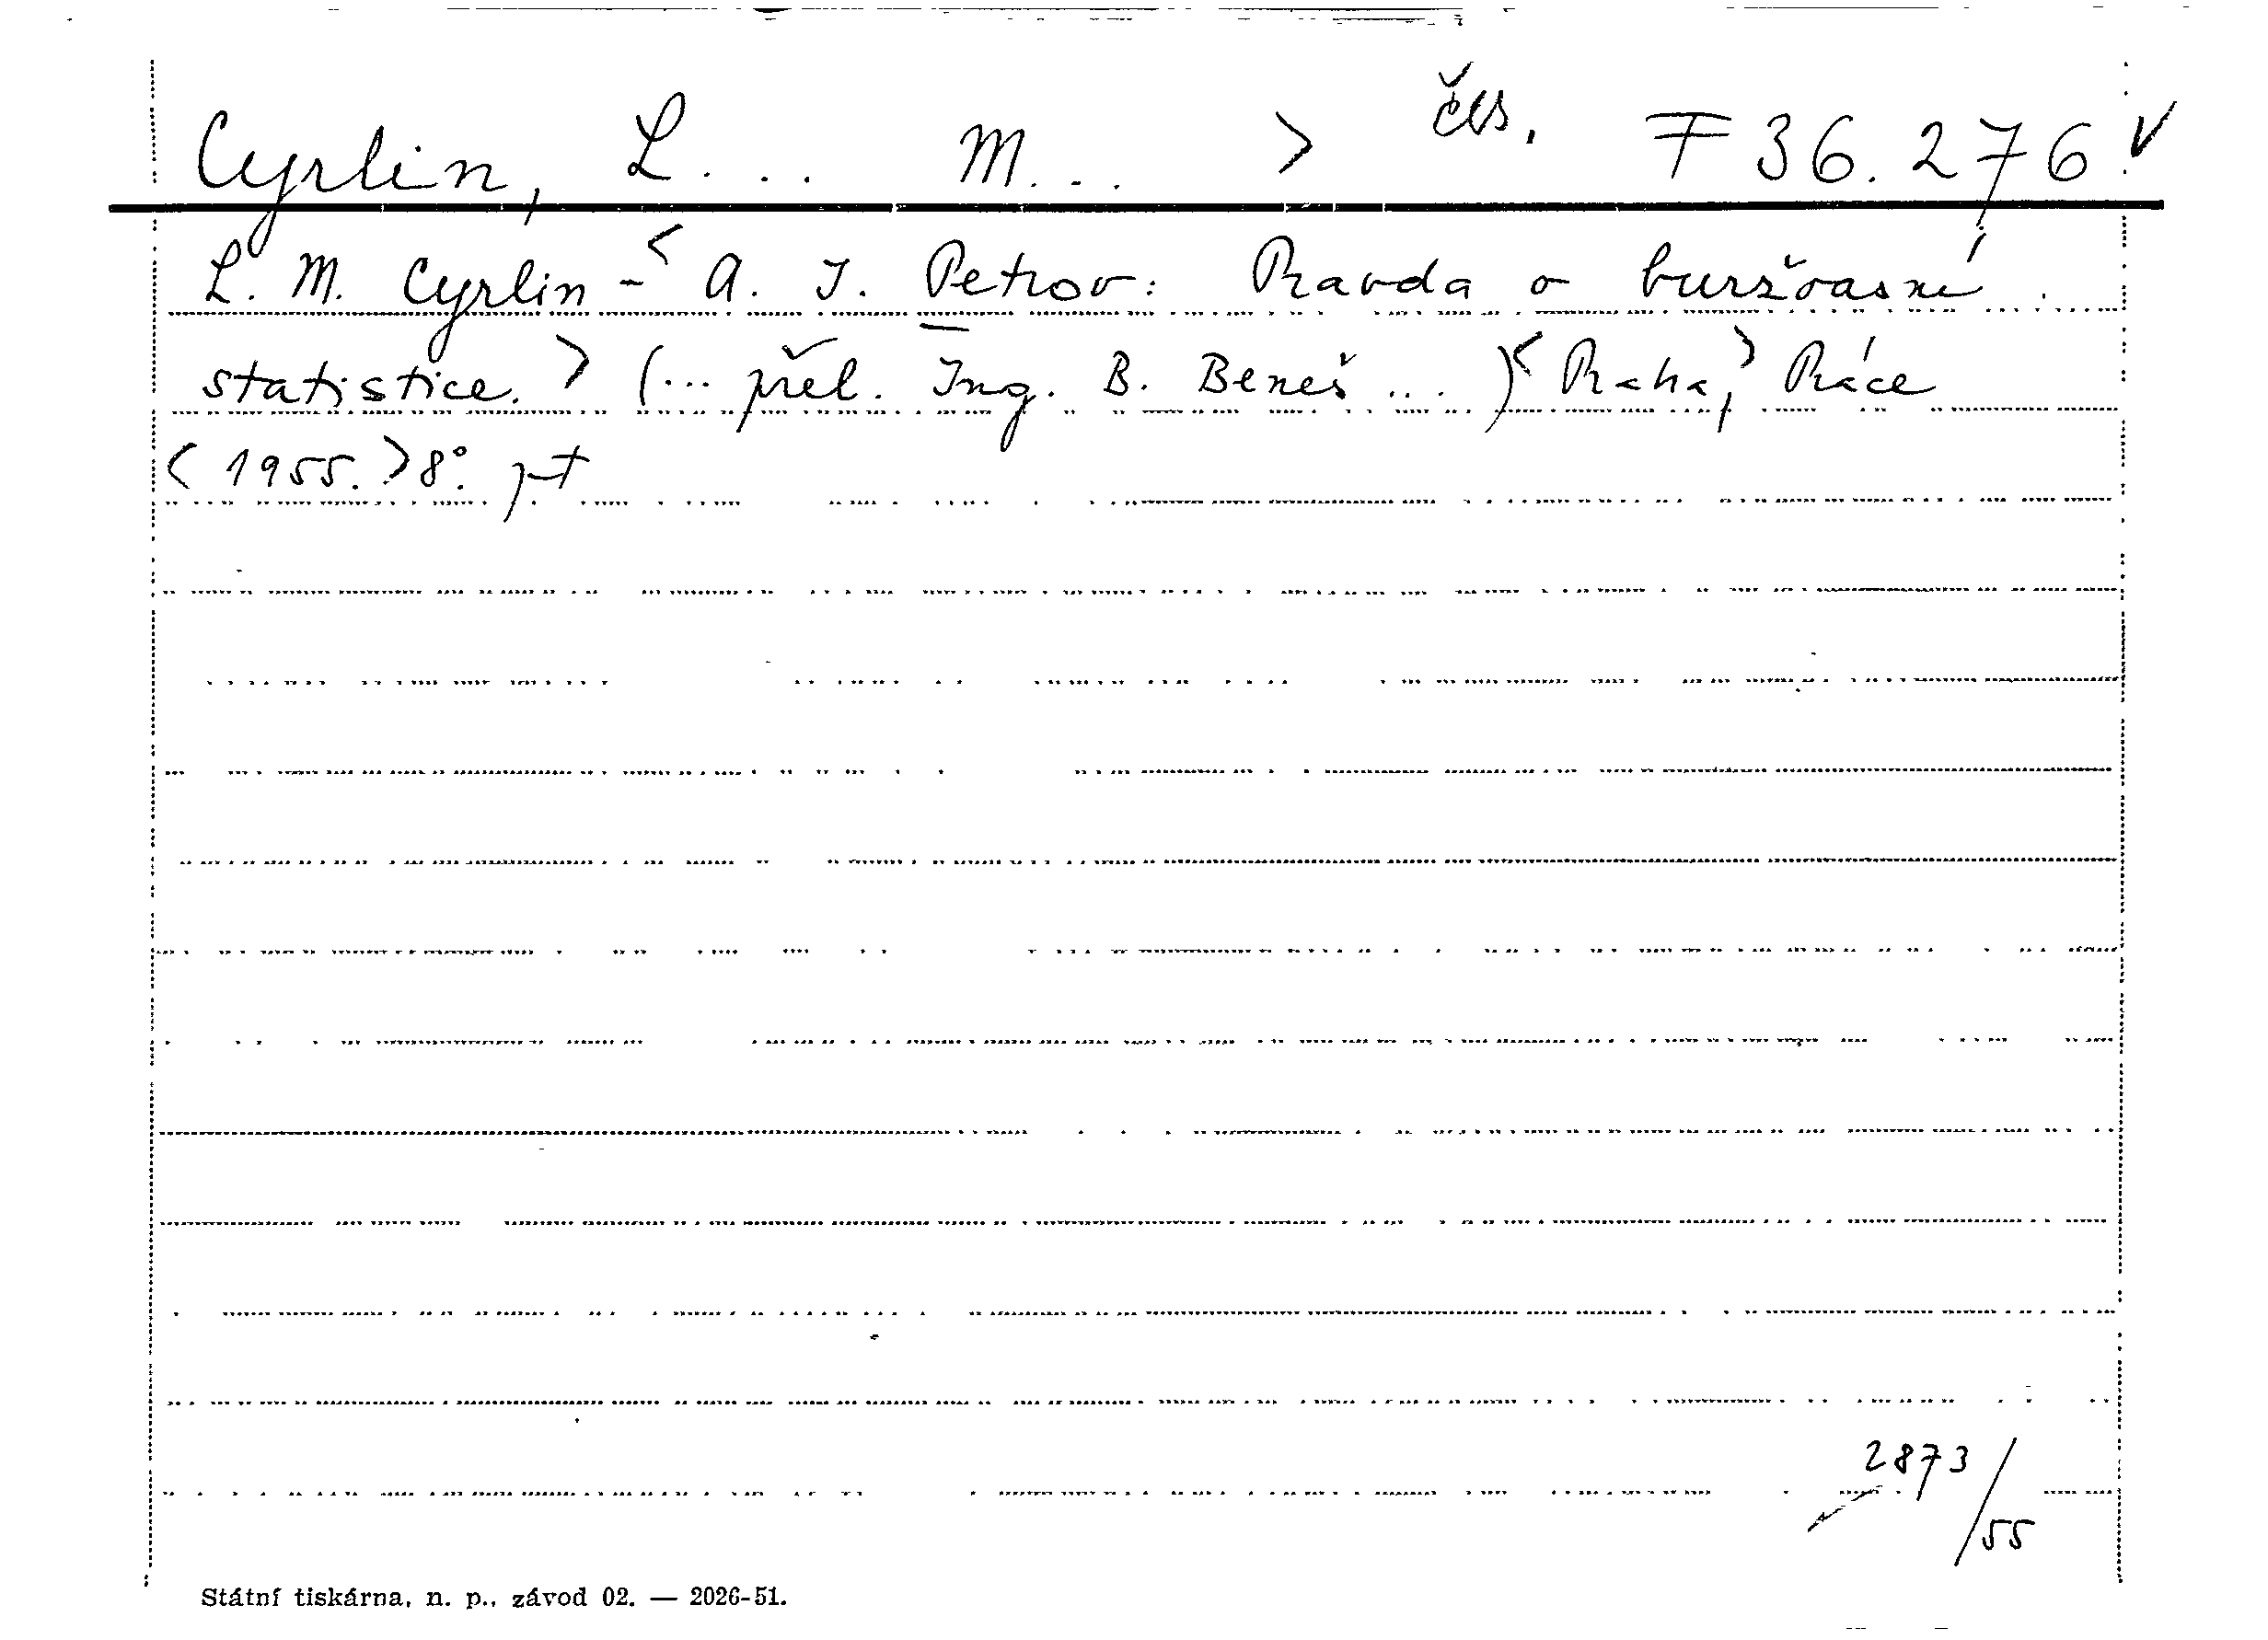 Cyrlin, L... M... > čes. F 36.276 v
L. M. Cyrlin - < A. I. Petrov: Pravda o buržoasní
statistice. > (... přel. Ing. B. Beneš ... ) < Praha, > Práce
< 1955. > 8°.
2873/55
Státní tiskárna, n. p., závod 02. — 2026-51.